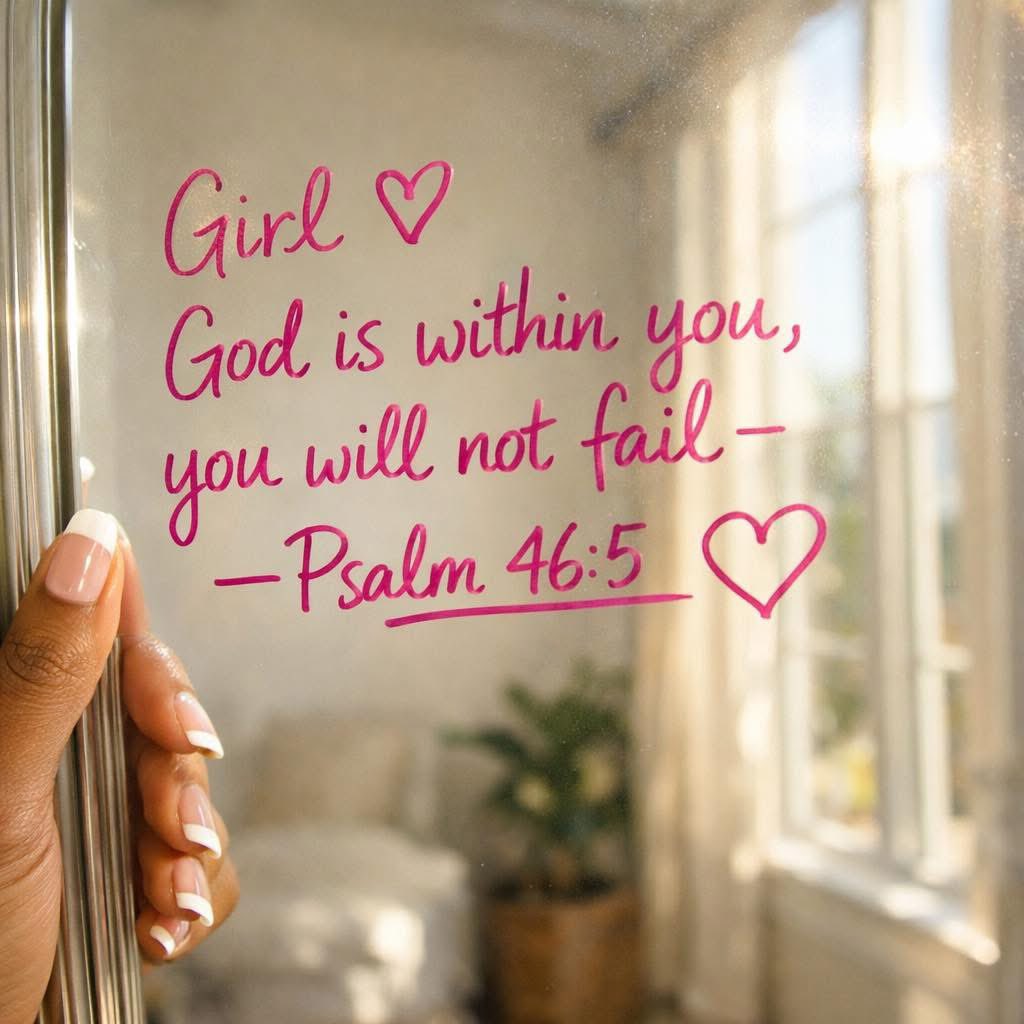 Girl ♡
God is within you,
you will not fail –
– Psalm 46:5 ♡